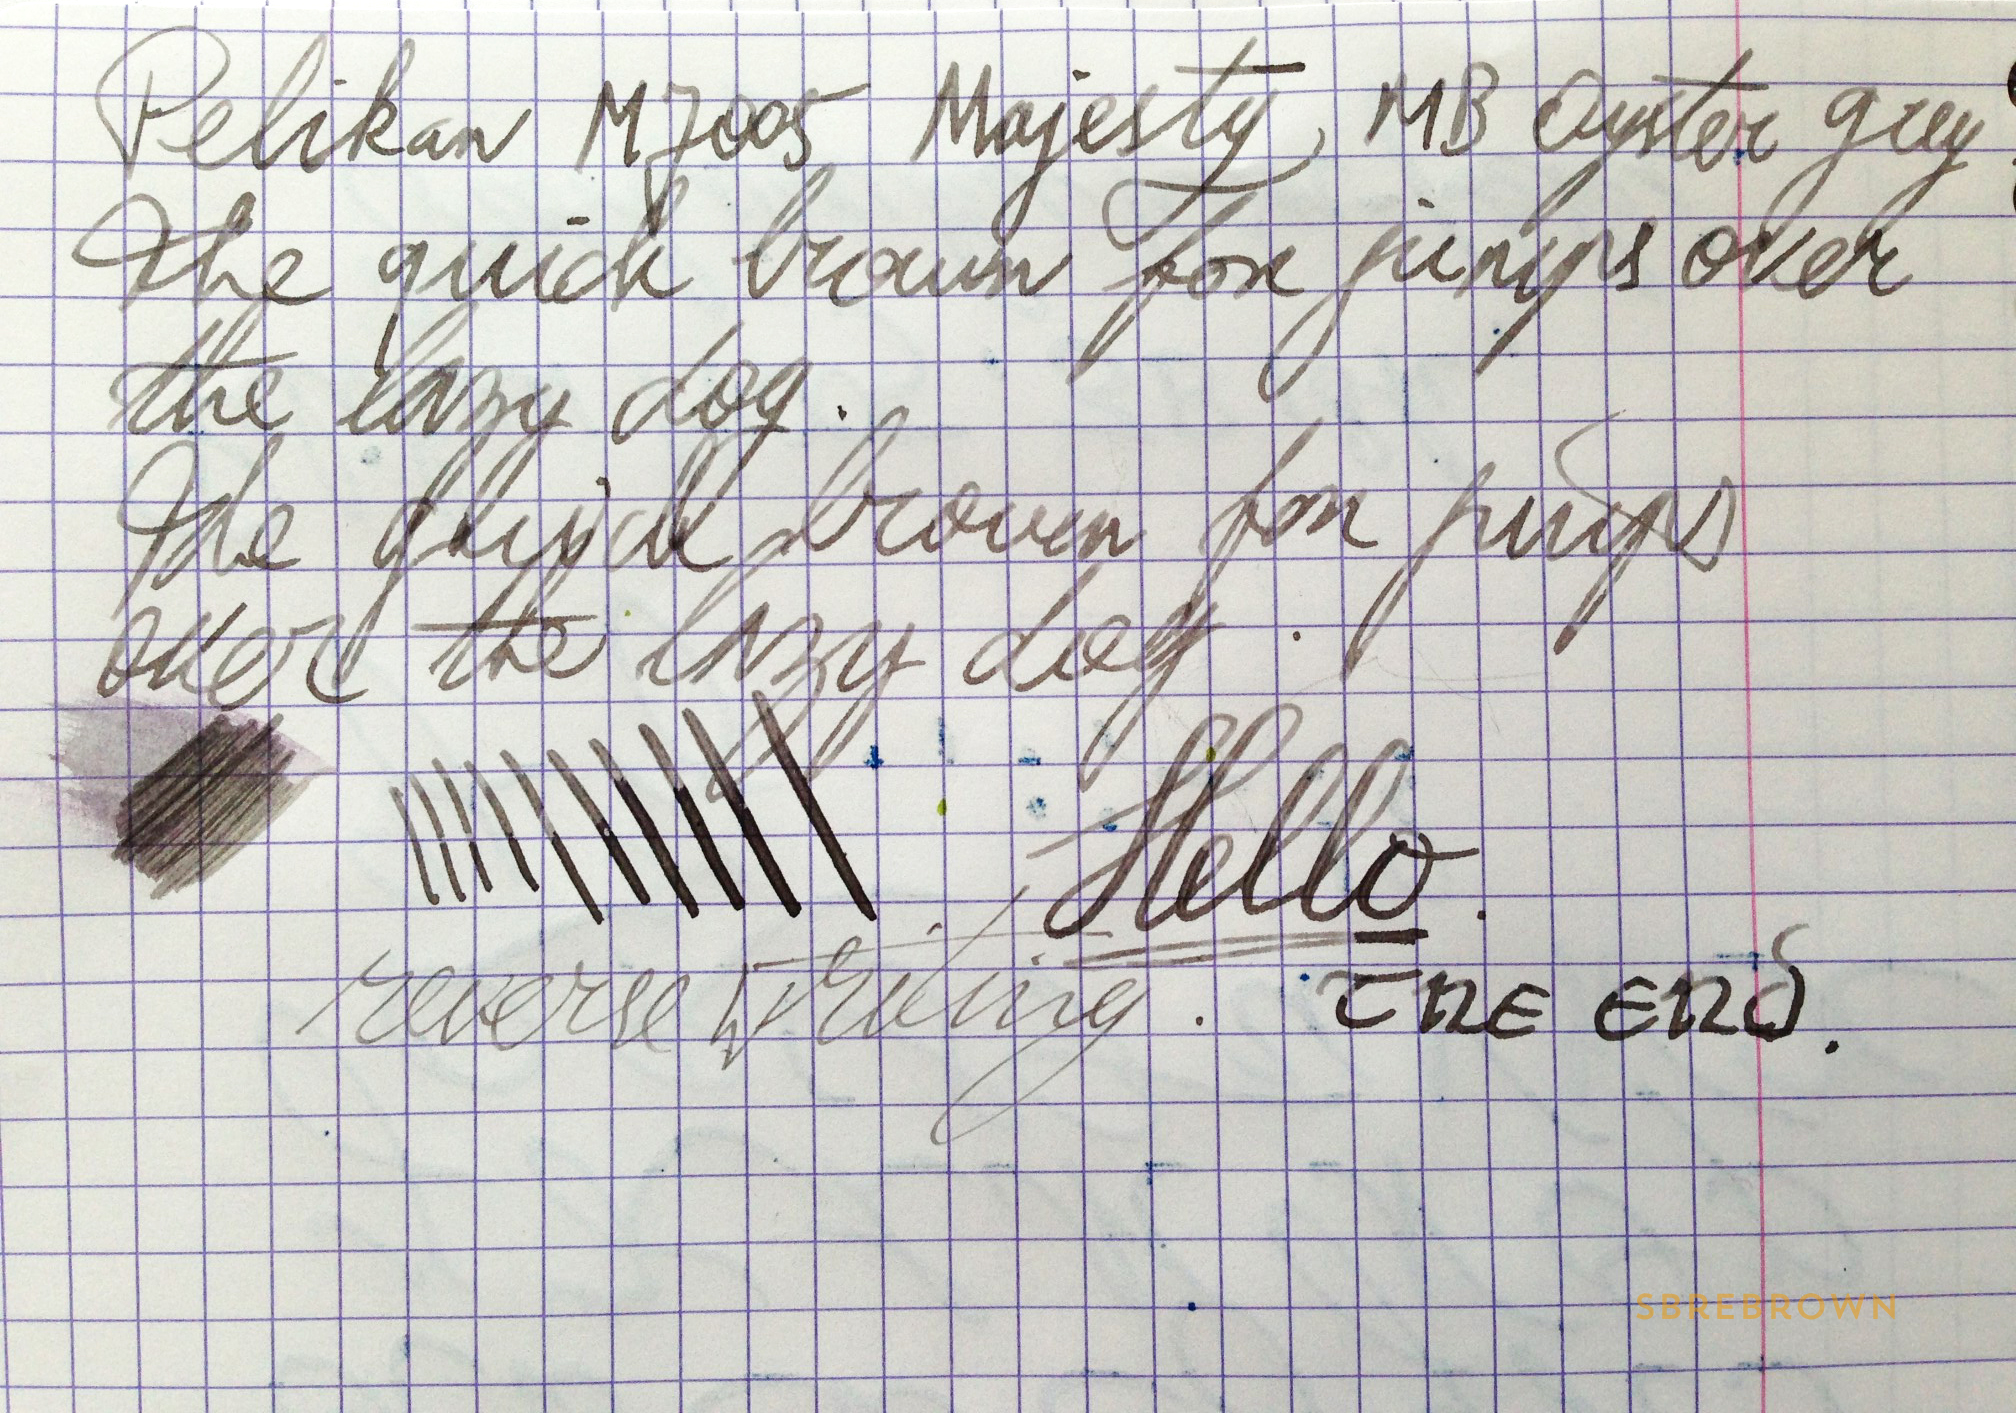 Pelikan M7005 Majesty, MB Oyster grey
The quick brown fox jumps over
the lazy dog.
The quick brown fox jumps
over the lazy dog.
Hello.
reverse writing. The end.
SBREBROWN